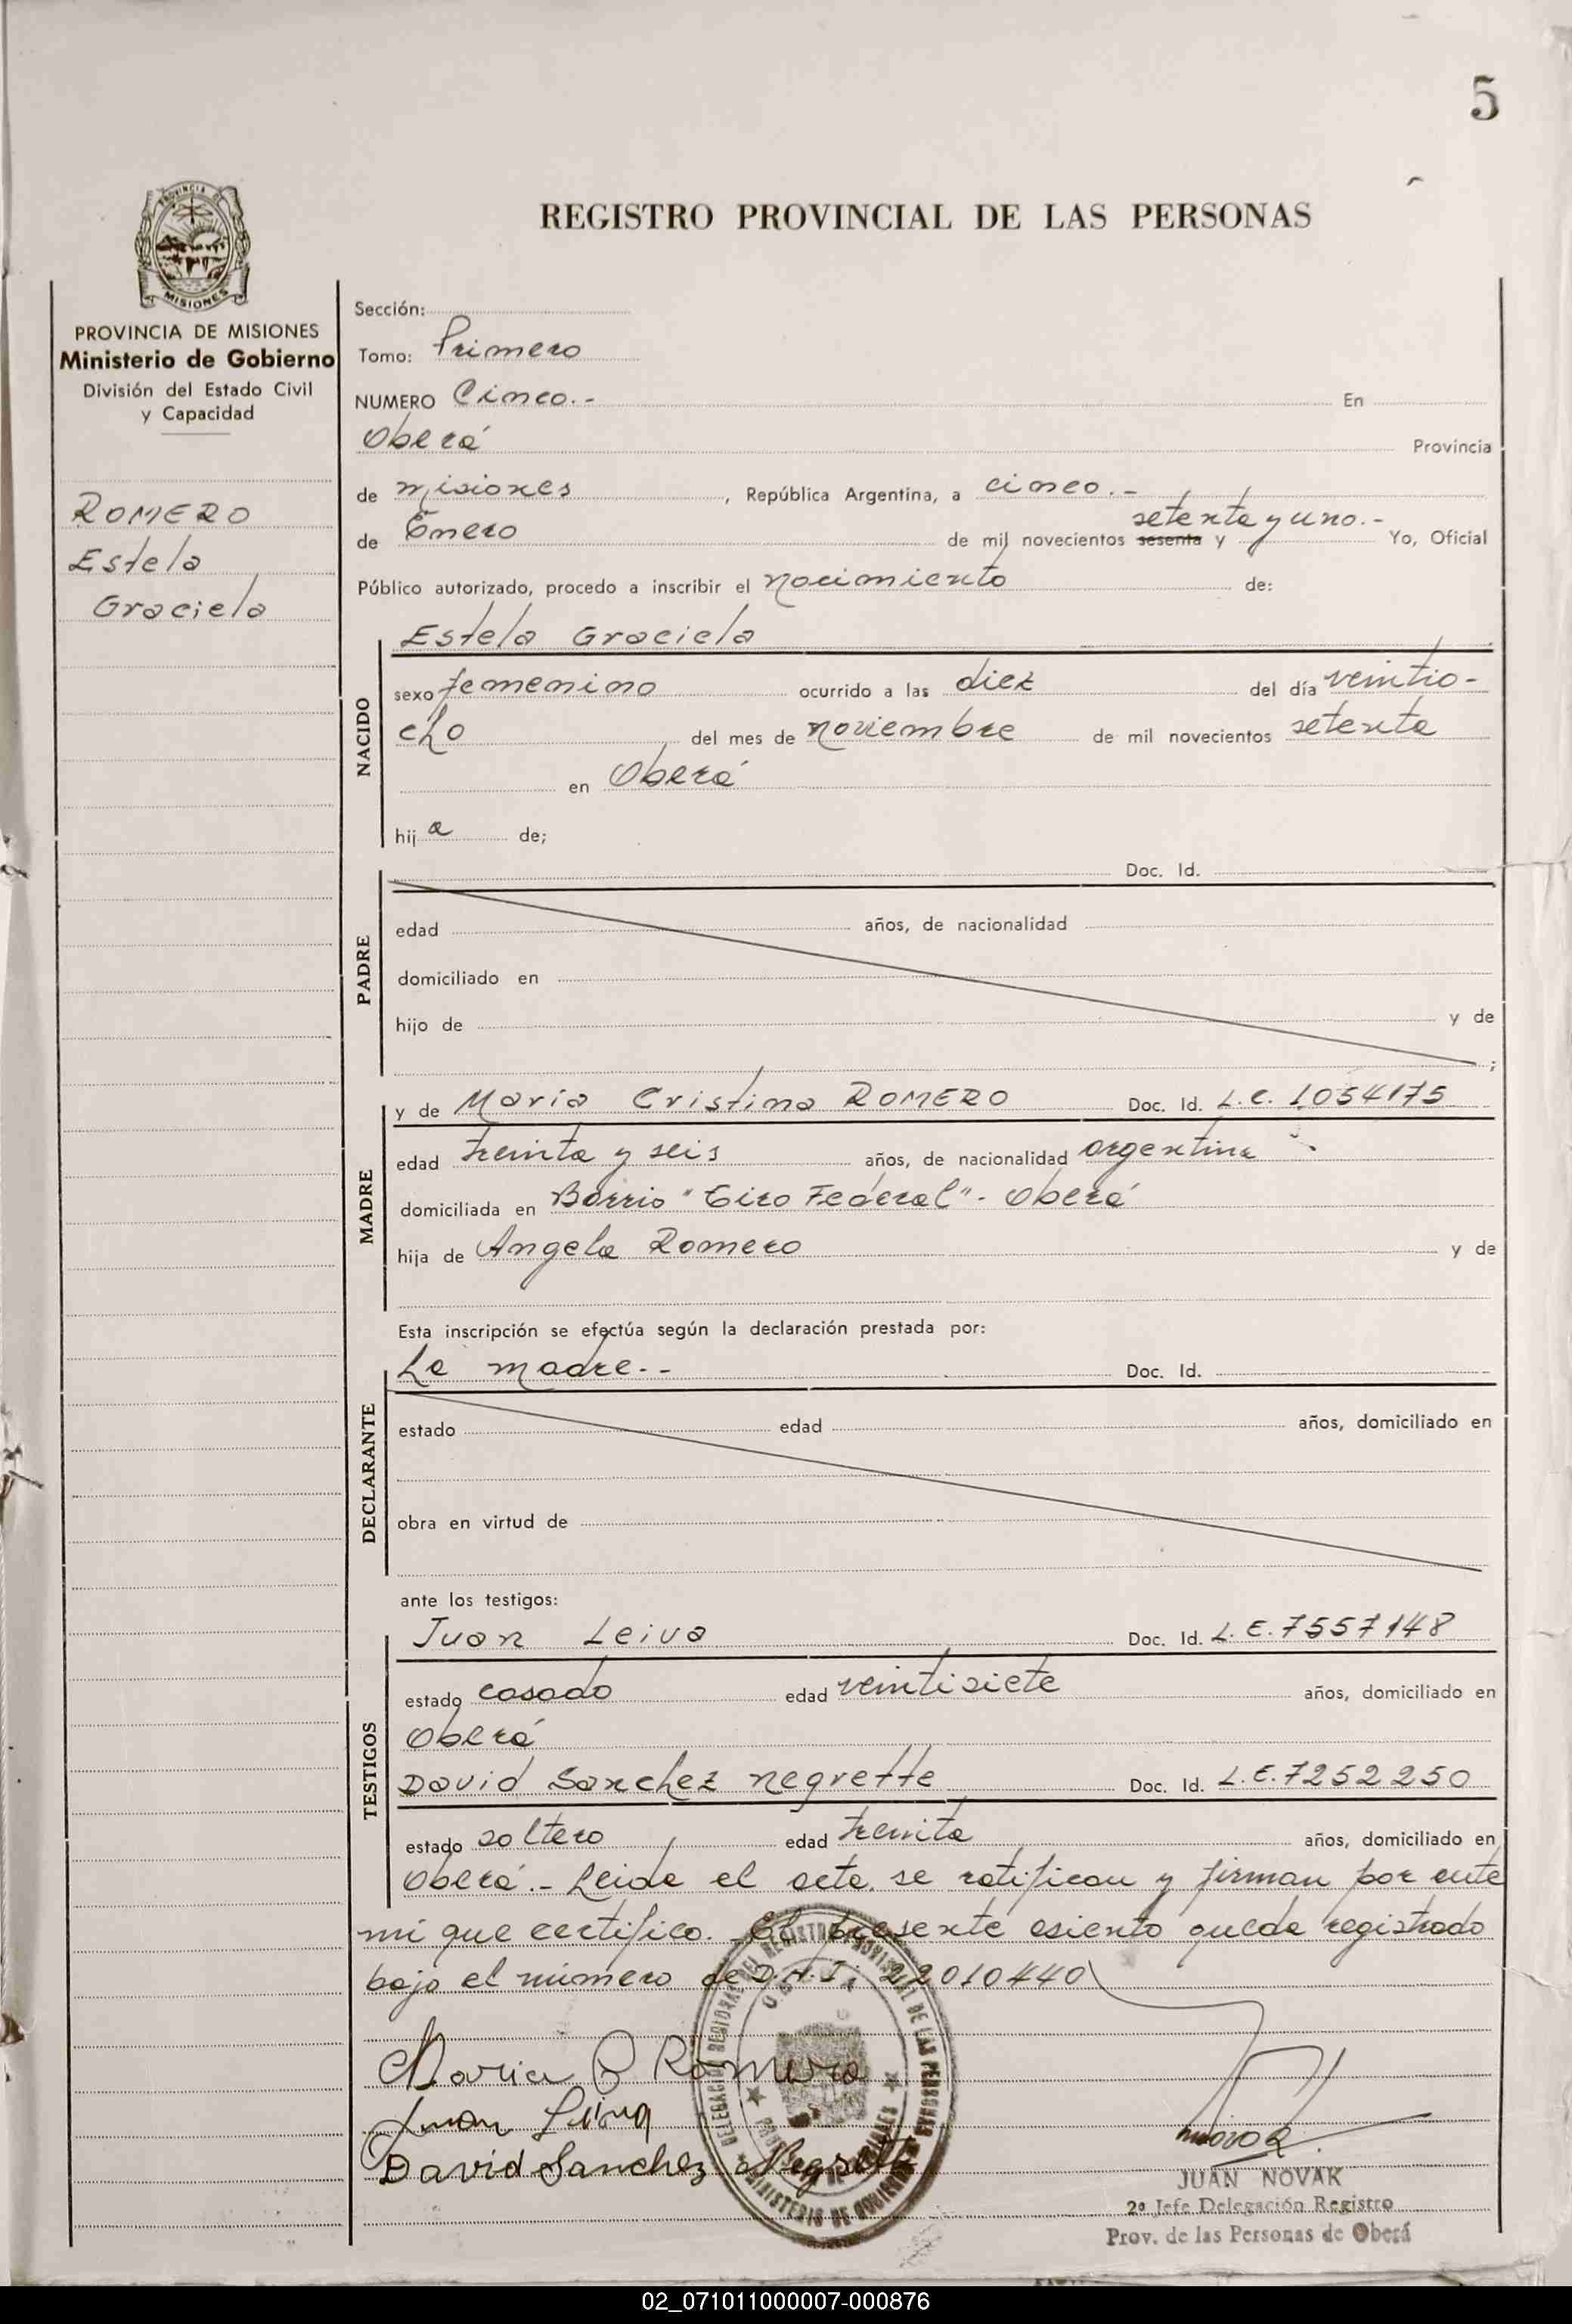 5
REGISTRO PROVINCIAL DE LAS PERSONAS
PROVINCIA DE
MISIONES
PROVINCIA DE MISIONES
Ministerio de Gobierno
División del Estado Civil
y Capacidad
ROMERO
Estela
Graciela
Sección:
Tomo: Primero
NUMERO Cinco.- En
Oberá Provincia
de Misiones, República Argentina, a cinco.-
setenta y uno.-
de Enero de mil novecientos sesenta y Yo, Oficial
Público autorizado, procedo a inscribir el nacimiento de:
Estela Graciela
NACIDO
sexo femenino ocurrido a las diez del día veintio-
cho del mes de noviembre de mil novecientos setenta
en Oberá
hija de;
PADRE
Doc. Id.
edad años, de nacionalidad
domiciliado en
hijo de y de
;
MADRE
y de María Cristina ROMERO Doc. Id. L.C. 1.054175
edad treinta y seis años, de nacionalidad argentina
domiciliada en Barrio "Tiro Federal"- Oberá
hija de Angela Romero y de
Esta inscripción se efectúa según la declaración prestada por:
DECLARANTE
La madre.-- Doc. Id.
estado edad años, domiciliado en
obra en virtud de
ante los testigos:
TESTIGOS
Juan Leiva Doc. Id. L.E. 7557148
estado casado edad veintisiete años, domiciliado en
Oberá
David Sanchez Negrette Doc. Id. L.E. 7252250
estado soltero edad treinta años, domiciliado en
Oberá.- Leida el acta, se ratifican y firman por ante
mí que certifico. El presente asiento queda registrado
bajo el número de D.N.I. 22010440
Maria C Romero
Juan Leiva
David Sanchez Negrette
DELEGACIÓN REGIONAL DEL REGISTRO PROVINCIAL DE LAS PERSONAS
MINISTERIO DE GOBIERNO
JUAN NOVAK
2º Jefe Delegación Registro
Prov. de las Personas de Oberá
02_071011000007-000876